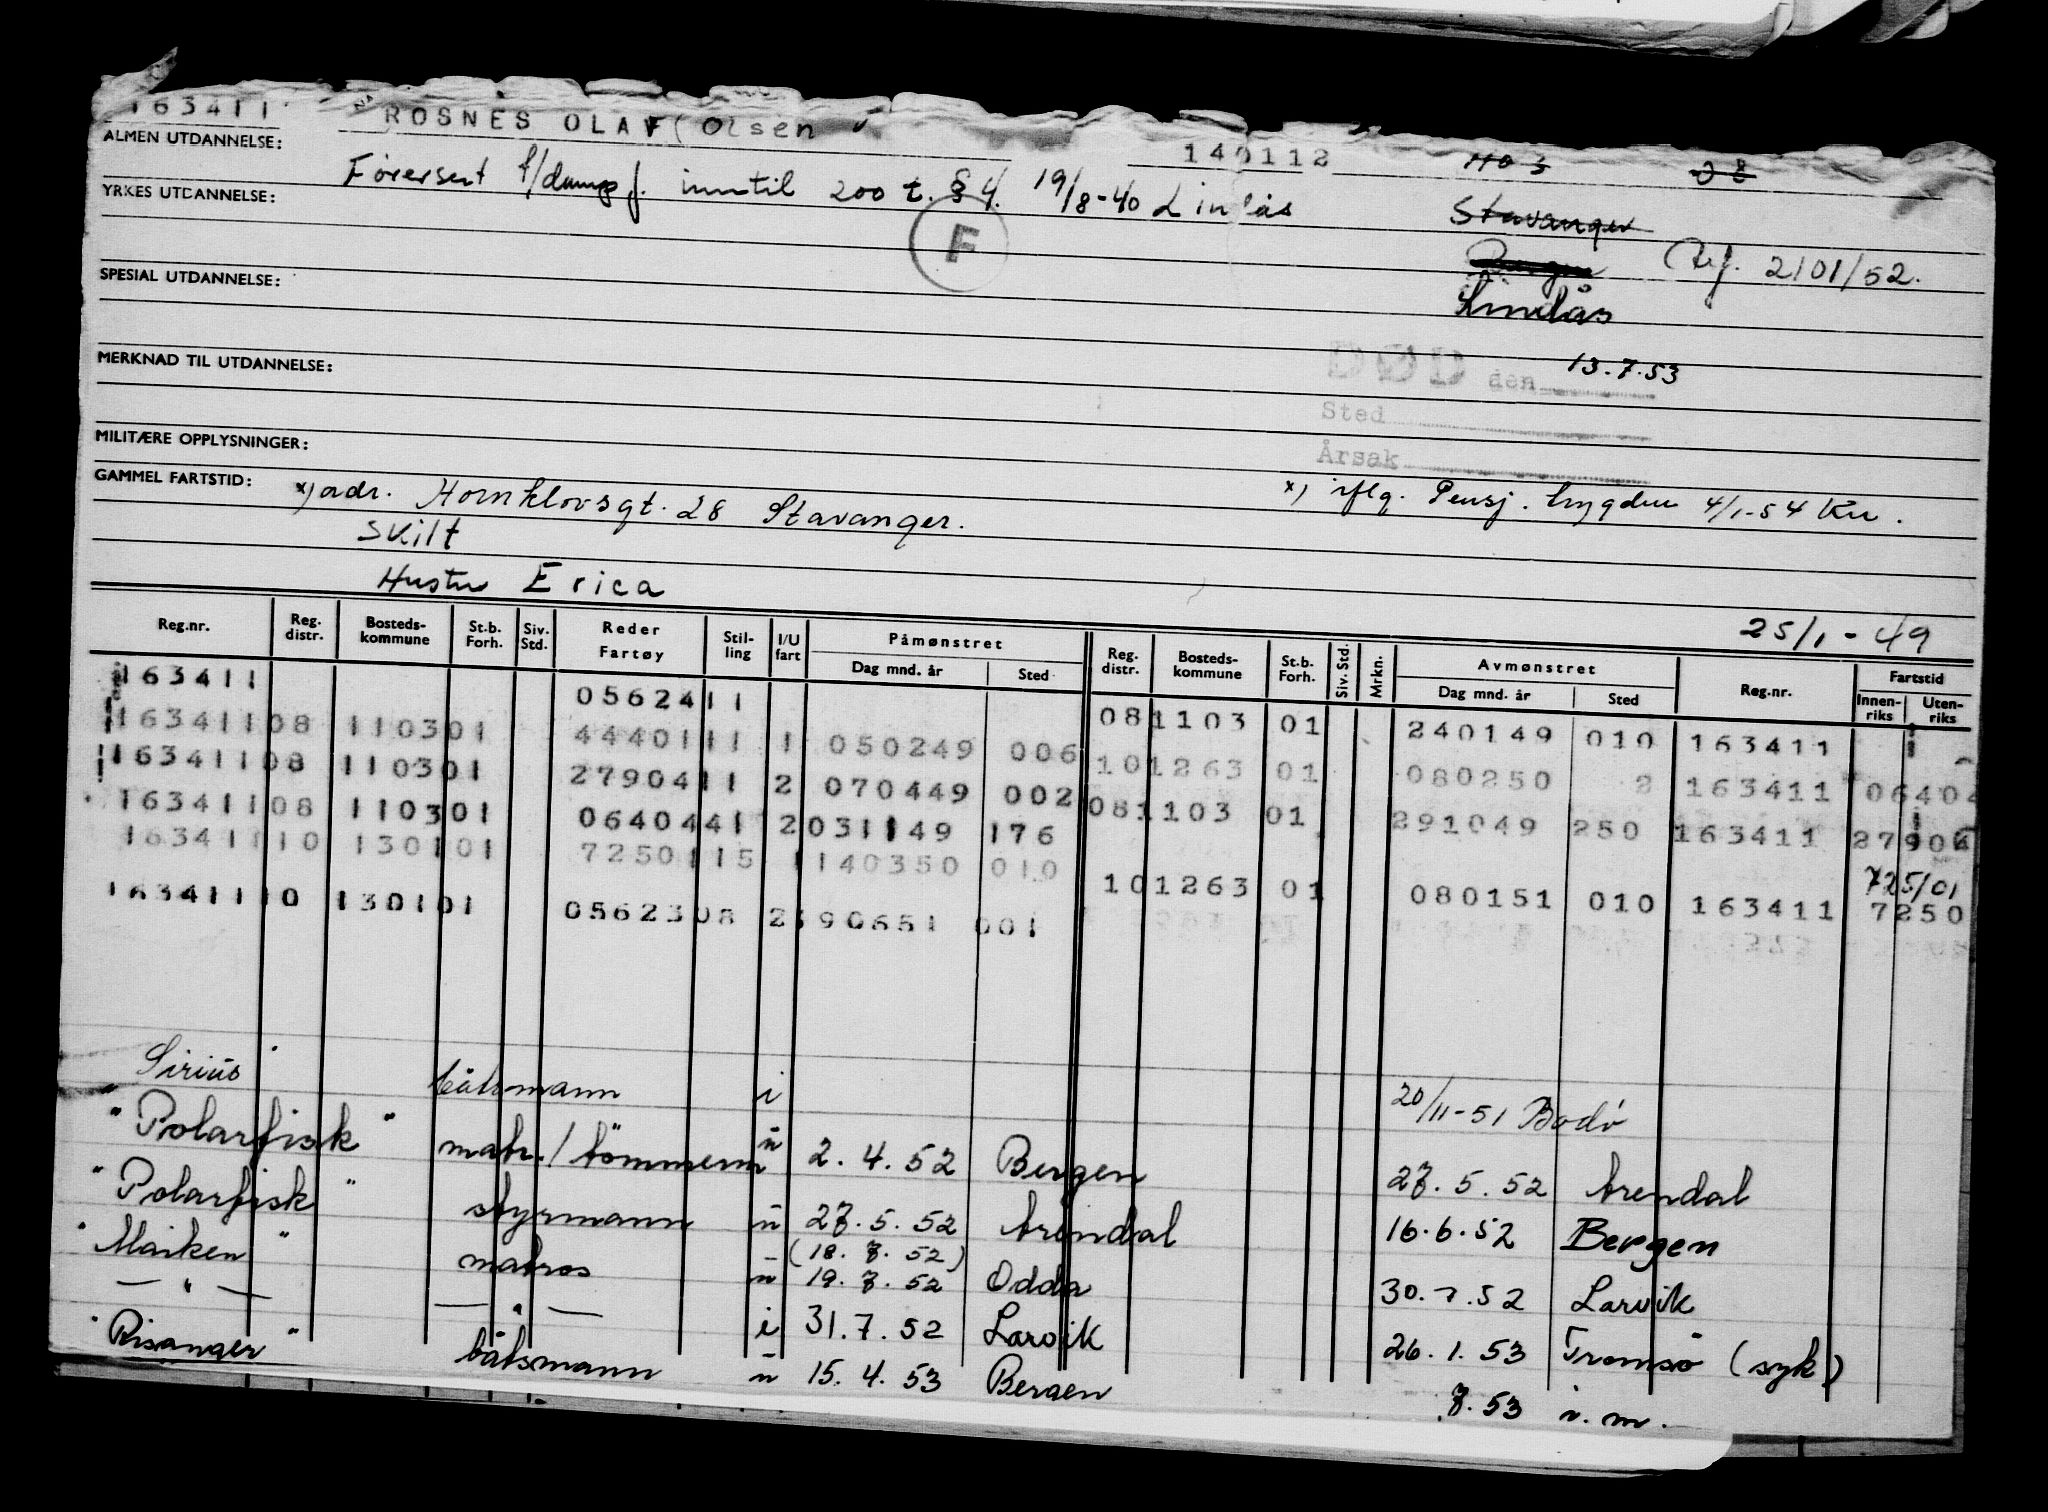 163411 ROSNES OLAF (Olsen
ALMEN UTDANNELSE: 140112
Førersert f/damp f. inntil 200 t. § 4. 19/8-40 Lindås
YRKES UTDANNELSE: Stavanger
F
Bergen Ref. 2101/52.
SPESIAL UTDANNELSE: Lindås
MERKNAD TIL UTDANNELSE: DØD den 13.7.53
Sted
MILITÆRE OPPLYSNINGER: Årsak
GAMMEL FARTSTID: x) adr. Hornklovsgt. 28 Stavanger. x) iflg. Pensj. trygden 4/1-54 Kn.
Skilt
Hustru Erica
25/1-49
Reg.nr. Reg. distr. Bosteds-kommune St.b. Forh. Siv. Std. Reder Fartøy Stil-ling I/U fart Påmønstret Dag mnd. år Sted Reg. distr. Bosteds-kommune St.b. Forh. Siv. Std. Mrkn. Avmønstret Dag mnd. år Sted Reg.nr. Fartstid Innen-riks Uten-riks
163411 0562411 081103 01 240149 010 163411
16341108 110301 4440111 1 050249 006 101263 01 080250 2 163411 06404
16341108 110301 2790411 2 070449 002 081103 01 291049 250 163411 27904
16341108 110301 0640441 2 031149 176
16341110 130101 7250115 1 140350 010 101263 01 080151 010 163411 7250
725/01
16341110 130101 0562308 2 190651 001
Sirius båtsmann i 20/11-51 Bodø
"Polarfisk" matr./tömmerm ü 2.4.52 Bergen 27.5.52 Arendal
"Polarfisk" styrmann ü 27.5.52 Arendal 16.6.52 Bergen
"Maiken" matros ü (18.7.52) 19.7.52 Odda 30.7.52 Larvik
— " — — " — i 31.7.52 Larvik 26.1.53 Tromsø (syk)
"Risanger" båtsmann ü 15.4.53 Bergen 7.53 i.m.